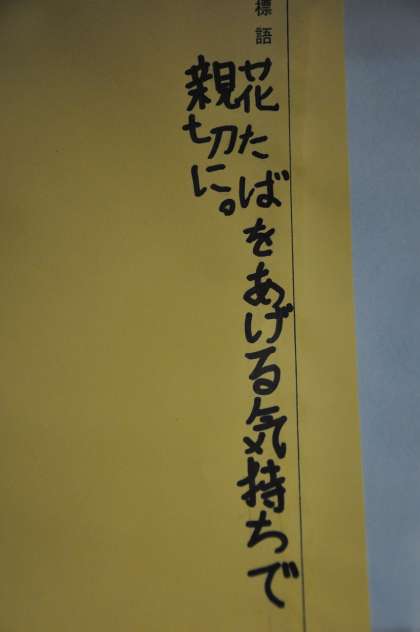 標語
花たばをあげる気持ちで
親切に。